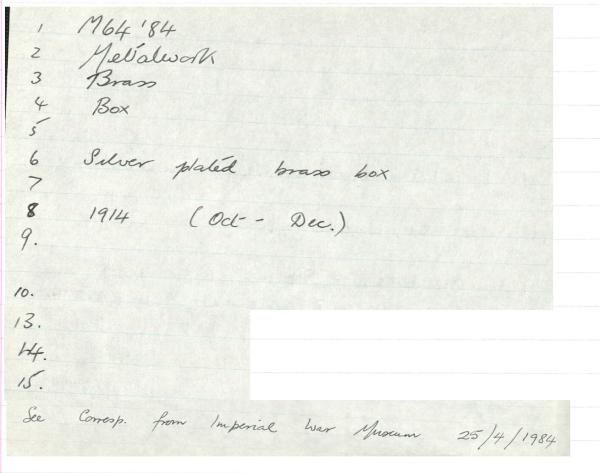 1 M64 '84
2 Metalwork
3 Brass
4 Box
5
6 Silver plated brass box
7
8 1914 (Oct - Dec.)
9.
10.
13.
14.
15.
See Corresp. from Imperial War Museum 25/4/1984